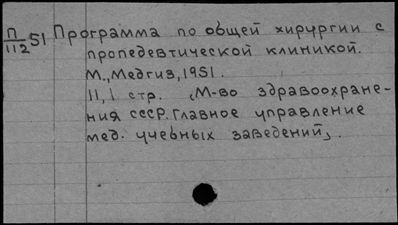 П
112 51 Программа по общей хирургии с
пропедевтической клиникой.
М., Медгиз, 1951.
11,1 стр. „М-во здравоохране-
ния СССР. Главное управление
мед. учебных заведений„.